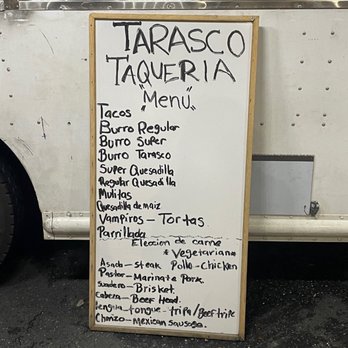 TARASCO
TAQUERIA
"Menu"
Tacos
Burro Regular
Burro Super
Burro Tarasco
Super Quesadilla
Regular Quesadilla
Mulitas
Quesadilla de maiz
Vampiros - Tortas
Parrillada
Eleccion de carne
* Vegetariano
Asada - steak Pollo - Chicken
Pastor - Marinate Pork
Suadero - Brisket.
Cabeza - Beef Head.
lengua - tongue - tripa/Beef tripe
Chorizo - Mexican sausage.